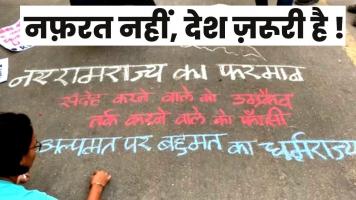 नफ़रत नहीं, देश ज़रूरी है !
नए रामराज्य का फरमान
संदेह करने वाले को उम्रकैद
तर्क करने वाले को फाँसी
अल्पमत पर बहुमत का धर्मराज्य